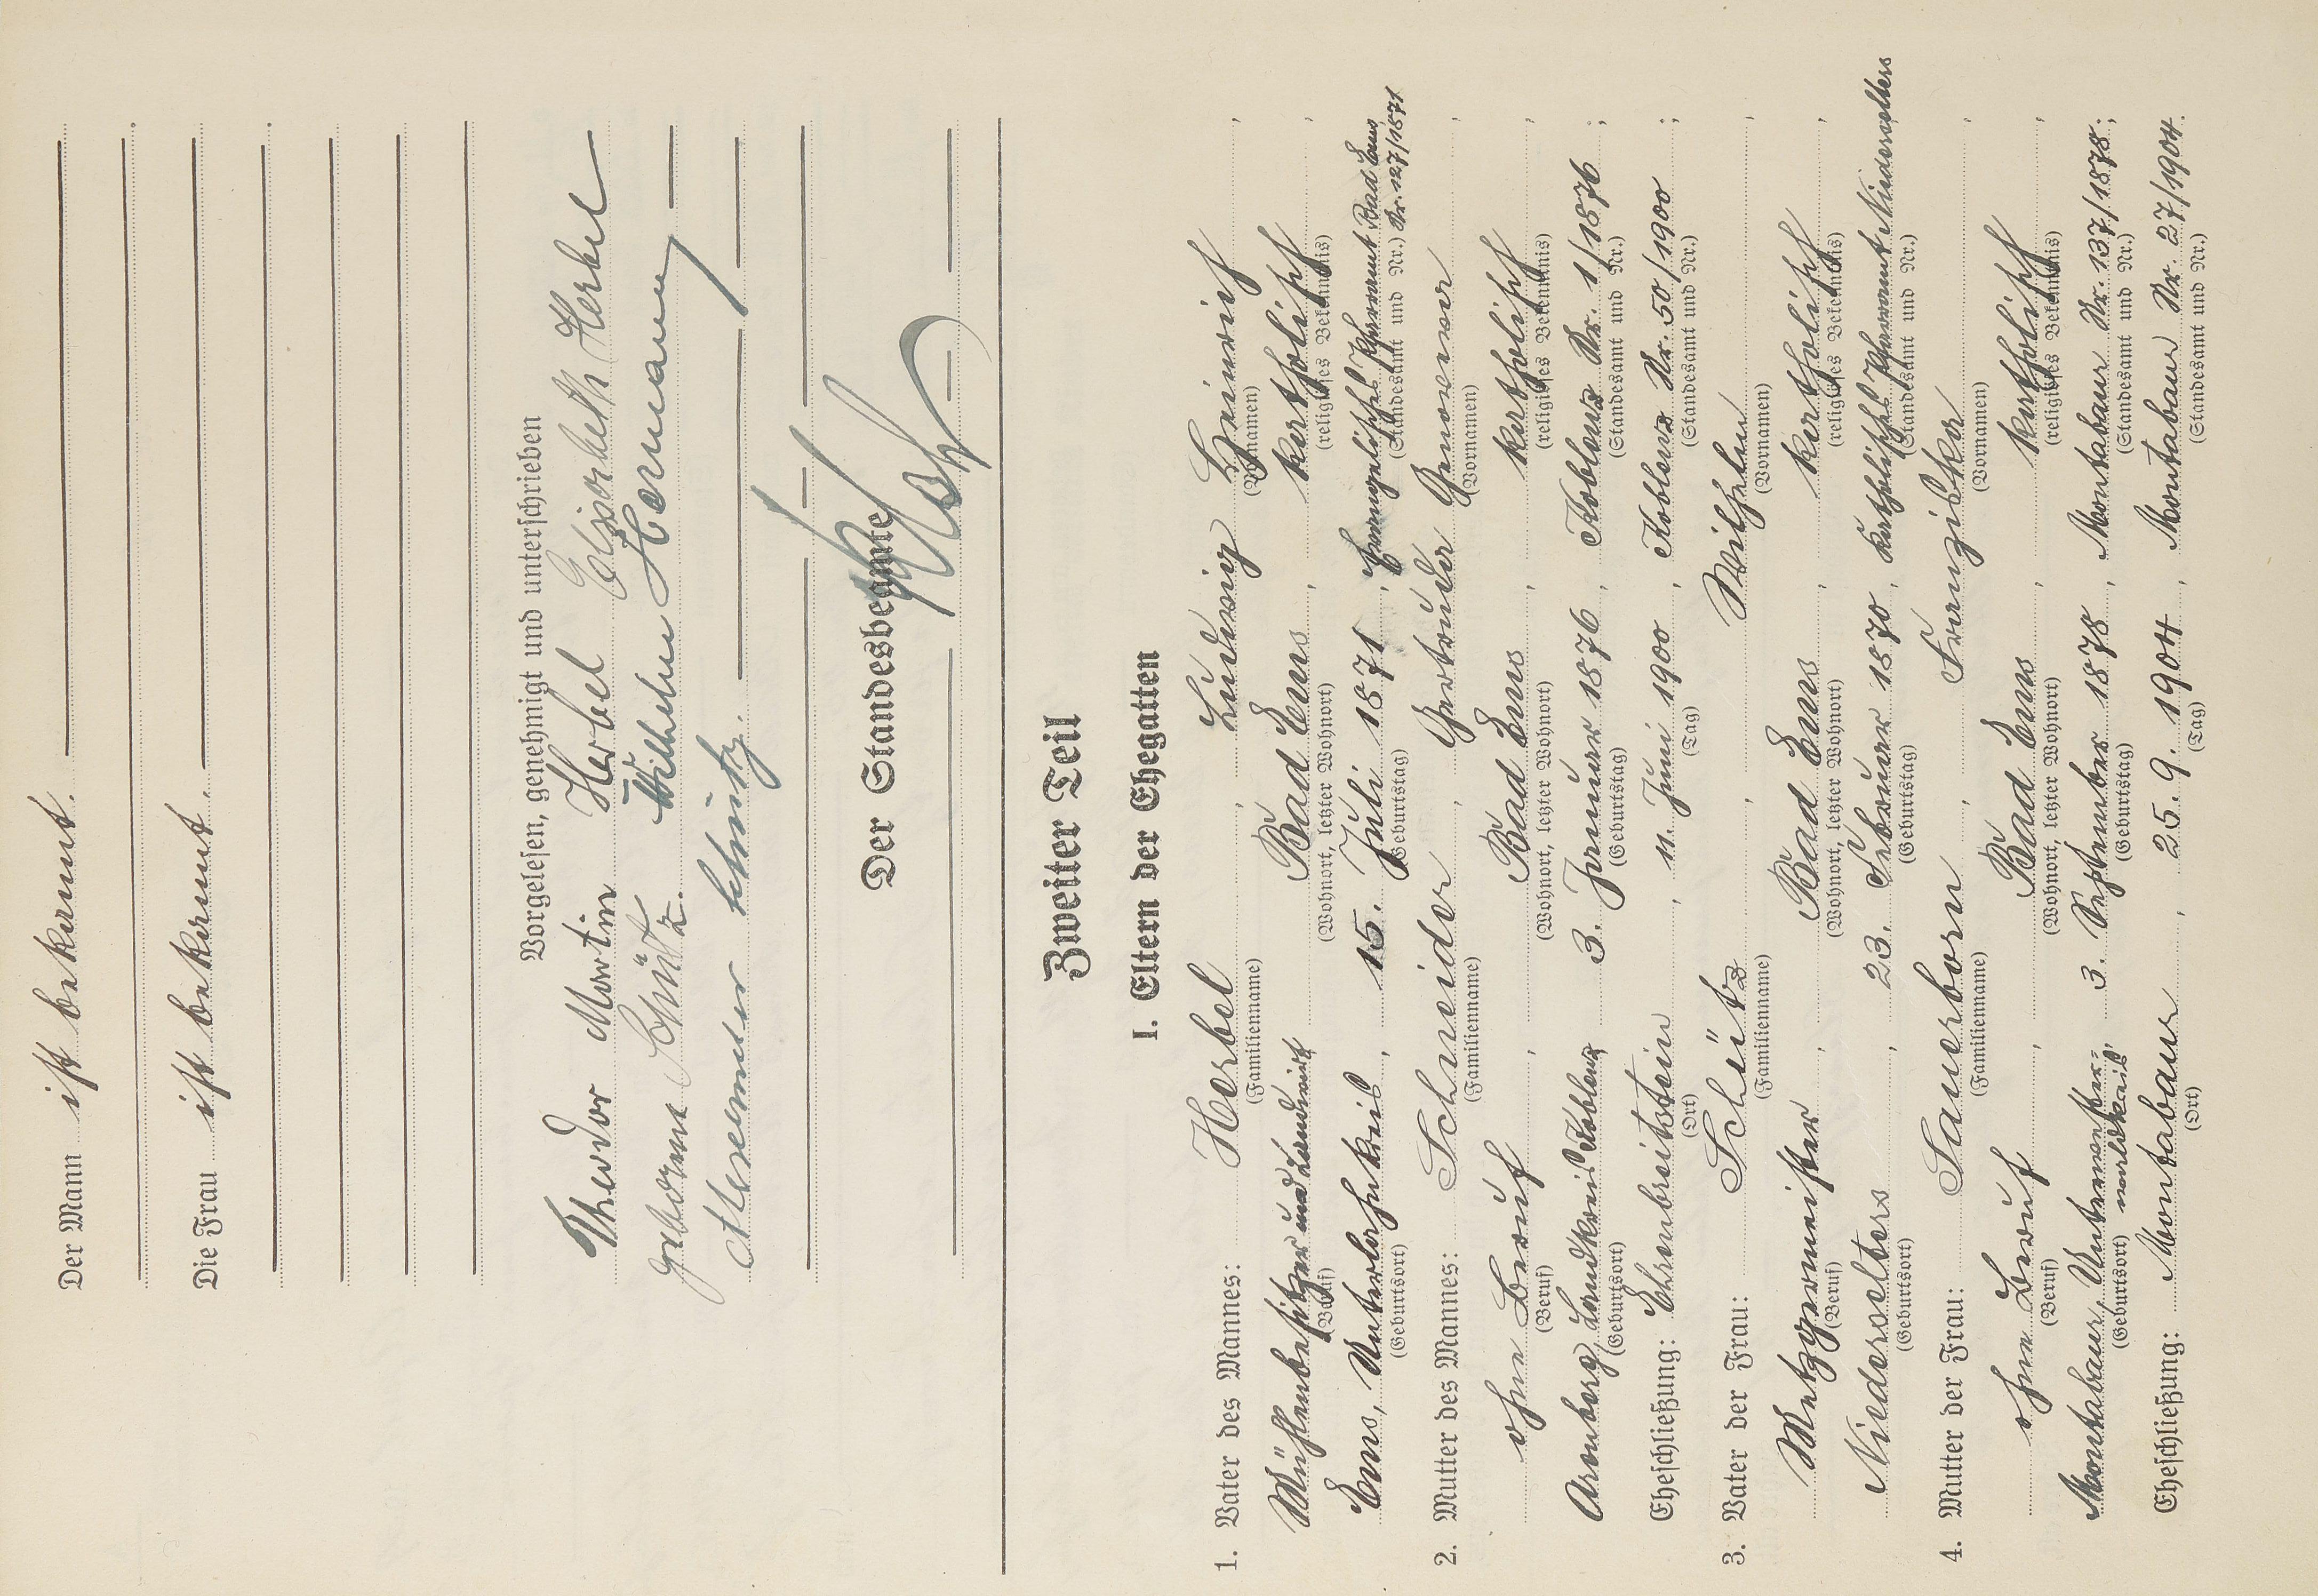 Der Mann ist bekannt.
Die Frau ist bekannt.
Vorgelesen, genehmigt und unterschrieben
Theodor Martin Herbel Elisabeth Herbel
geborene Schütz. Wilhelm Hermann
Alexander Schütz.
Der Standesbeamte
Zweiter Teil
I. Eltern der Ehegatten
1. Vater des Mannes: Herbel, Ludwig Heinrich,
(Familienname) (Vornamen)
Mühlenbesitzer und Landwirt, Bad Ems, katholisch,
(Beruf) (Wohnort, letzter Wohnort) (religiöses Bekenntnis)
Ems, Unterlahnkreis, 15. Juli 1871, Evangelisches Pfarramt Bad Ems Nr. 127/1871
(Geburtsort) (Geburtstag) (Standesamt und Nr.)
2. Mutter des Mannes: Schneider, Gertruda Genoveva,
(Familienname) (Vornamen)
ohne Beruf, Bad Ems, katholisch,
(Beruf) (Wohnort, letzter Wohnort) (religiöses Bekenntnis)
Arenberg, Landkreis Koblenz 3. Januar 1876, Koblenz Nr. 1/1876;
(Geburtsort) (Geburtstag) (Standesamt und Nr.)
Eheschließung: Ehrenbreitstein, 11. Juni 1900, Koblenz Nr. 50/1900;
(Ort) (Tag) (Standesamt und Nr.)
3. Vater der Frau: Schütz, Wilhelm,
(Familienname) (Vornamen)
Metzgermeister, Bad Ems, katholisch,
(Beruf) (Wohnort, letzter Wohnort) (religiöses Bekenntnis)
Niederelters, 23. Februar 1870, Katholisches Pfarramt Niederselters
(Geburtsort) (Geburtstag) (Standesamt und Nr.)
4. Mutter der Frau: Sauerborn, Franziska,
(Familienname) (Vornamen)
ohne Beruf, Bad Ems, katholisch,
(Beruf) (Wohnort, letzter Wohnort) (religiöses Bekenntnis)
Montabaur, Unterwesterwaldkreis, 3. September 1878, Montabaur Nr. 137/1878;
(Geburtsort) (Geburtstag) (Standesamt und Nr.)
Eheschließung: Montabaur, 25. 9. 1904, Montabaur Nr. 27/1904.
(Ort) (Tag) (Standesamt und Nr.)